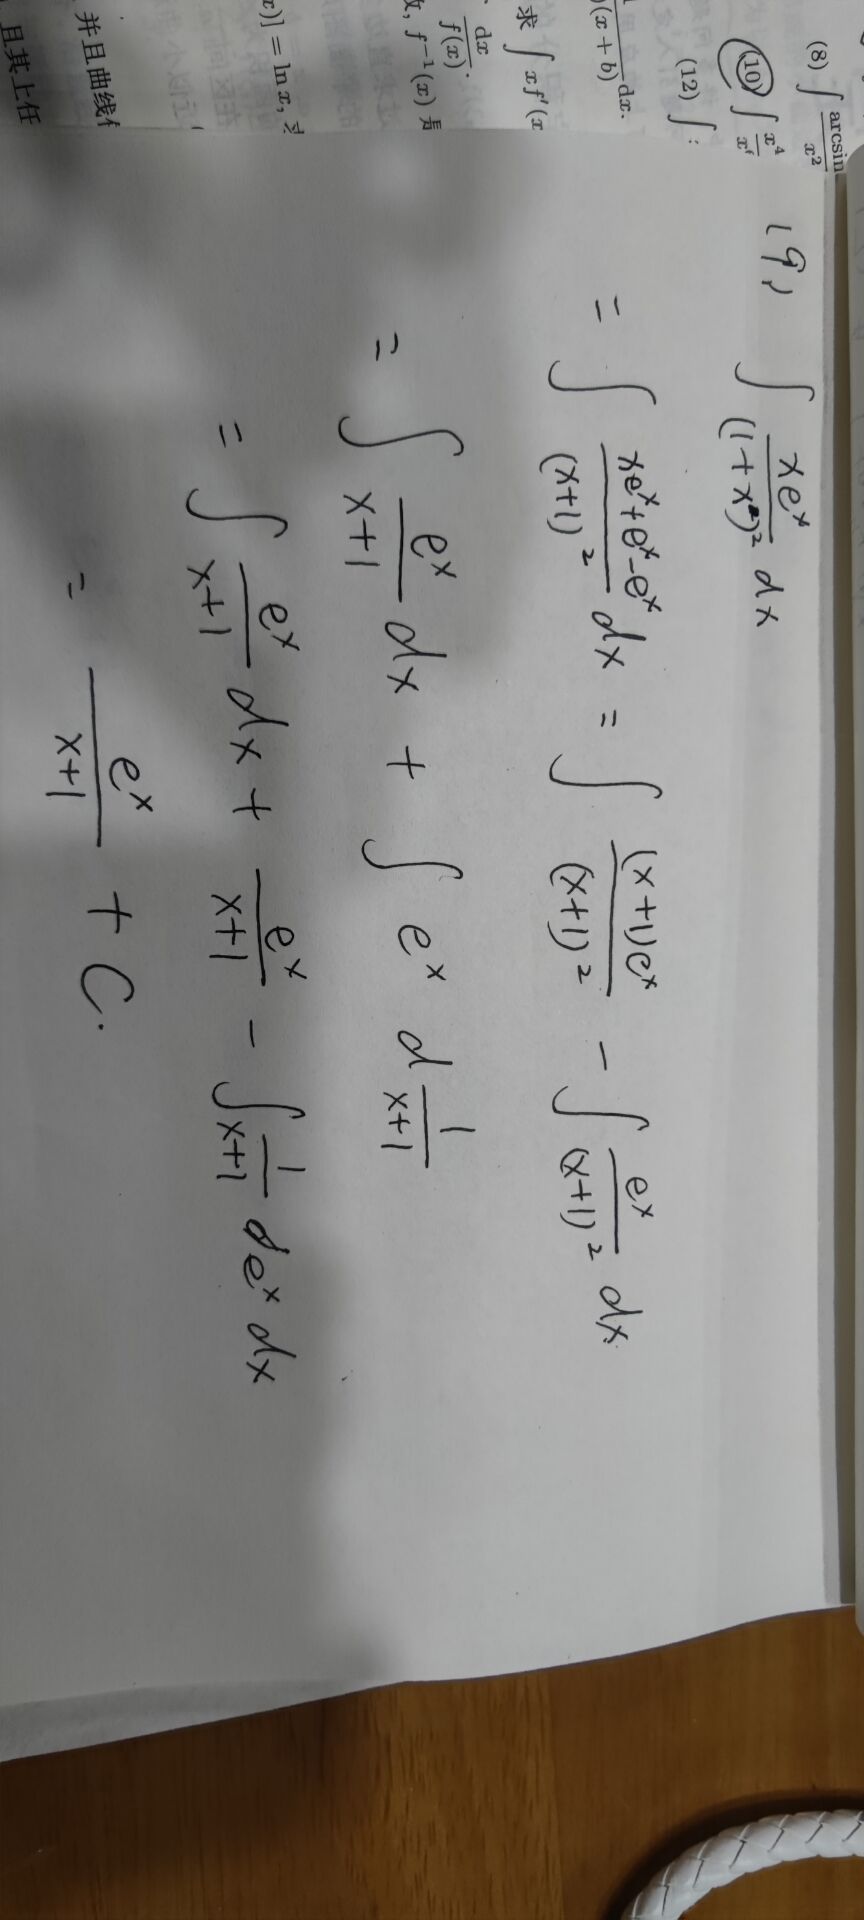 (8) ∫ arcsin / x²
(10) ∫ x⁴ /
(12) ∫
(x + b) dx.
求 ∫ x f′(x
∫ dx / f(x).
f⁻¹(x) 是
x)] = ln x,
并且曲线
且其上任
(9) ∫ xeˣ / (1+x²)² dx
= ∫ (xeˣ+eˣ-eˣ) / (x+1)² dx = ∫ (x+1)eˣ / (x+1)² - ∫ eˣ / (x+1)² dx.
= ∫ eˣ / (x+1) dx + ∫ eˣ d 1 / (x+1)
= ∫ eˣ / (x+1) dx + eˣ / (x+1) - ∫ 1 / (x+1) deˣ dx
= eˣ / (x+1) + C.